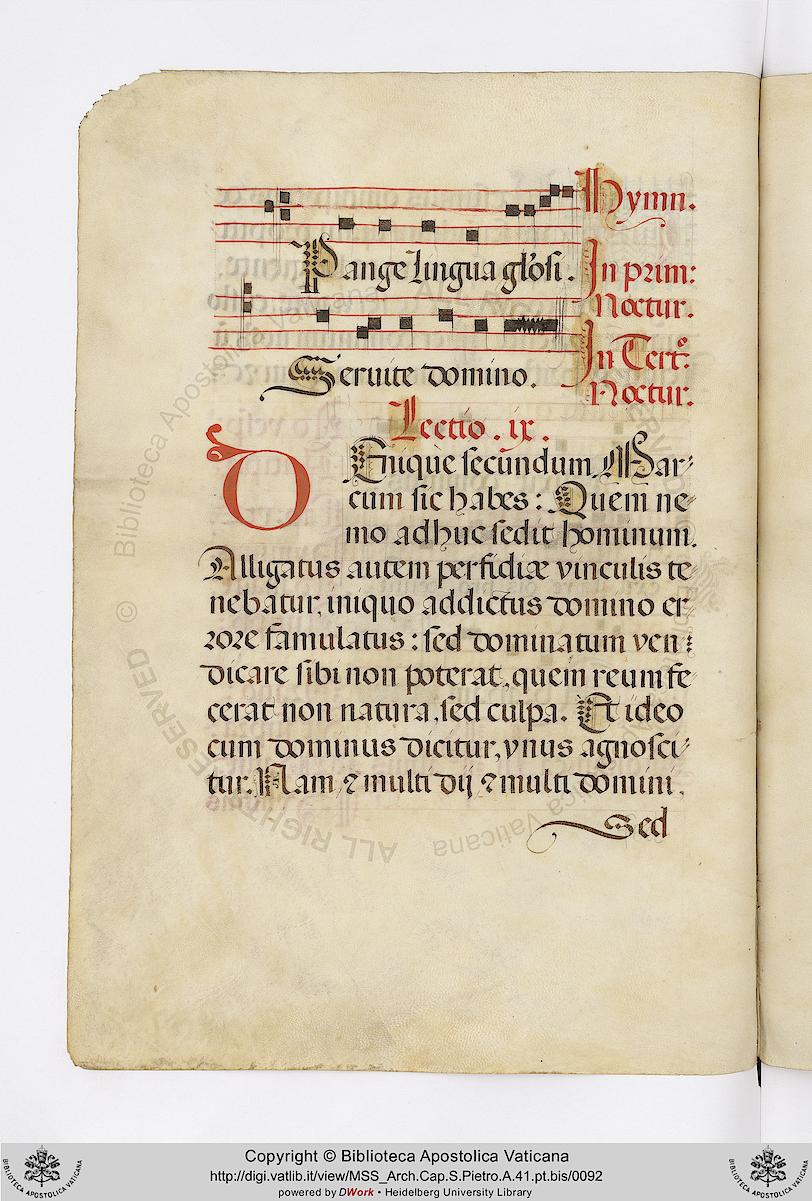 Hymn.
Pange lingua glo'si.
In prim:
Noctur.
In Tert°:
Seruite domino.
Noctur.
Lectio. ix.
DEnique secundum Mar-
cum sic habes: Quem ne-
mo adhuc sedit hominum.
Alligatus autem perfidiæ vinculis te
nebatur, iniquo addictus domino er-
rore famulatus: sed dominatum ven:
dicare sibi non poterat, quem reum fe
cerat non natura, sed culpa. Et ideo
cum dominus dicitur, vnus agnosci-
tur. Nam & multi dij, & multi domini.
Sed
© Biblioteca Apostolica Vaticana
ALL RIGHTS RESERVED
BIBLIOTECA APOSTOLICA VATICANA
Copyright © Biblioteca Apostolica Vaticana
http://digi.vatlib.it/view/MSS_Arch.Cap.S.Pietro.A.41.pt.bis/0092
powered by DWork • Heidelberg University Library
BIBLIOTECA APOSTOLICA VATICANA